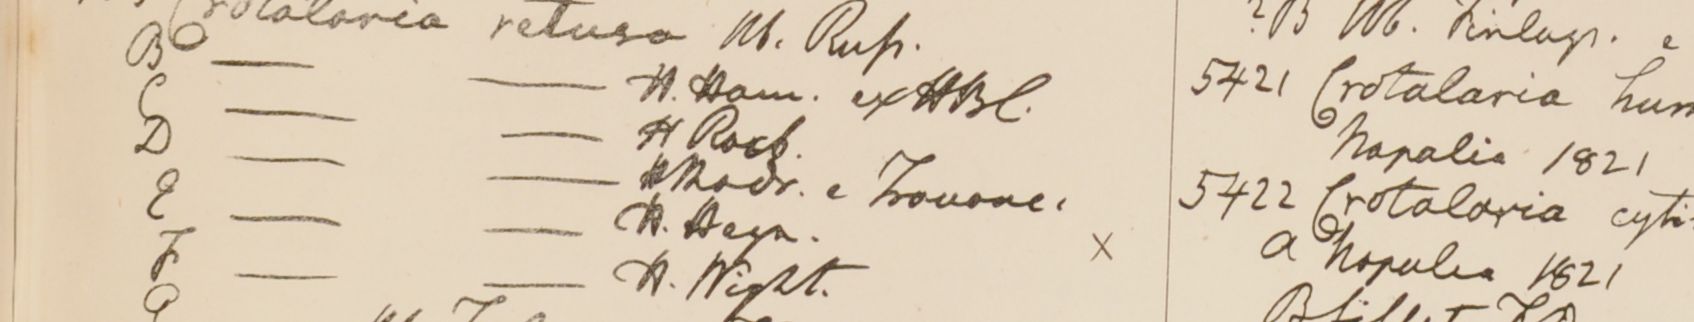 Crotalaria retusa Hb. Rusp.
B — — H. Ham. ex HBC.
C — — H Roxb.
D — — H Madr. e Travanc.
E — — H. Heyn.
F — — H. Wight.
G
?B Hb. Finlays. e
5421 Crotalaria hum
Napalia 1821
5422 Crotalaria cyti
a Napalia 1821
X